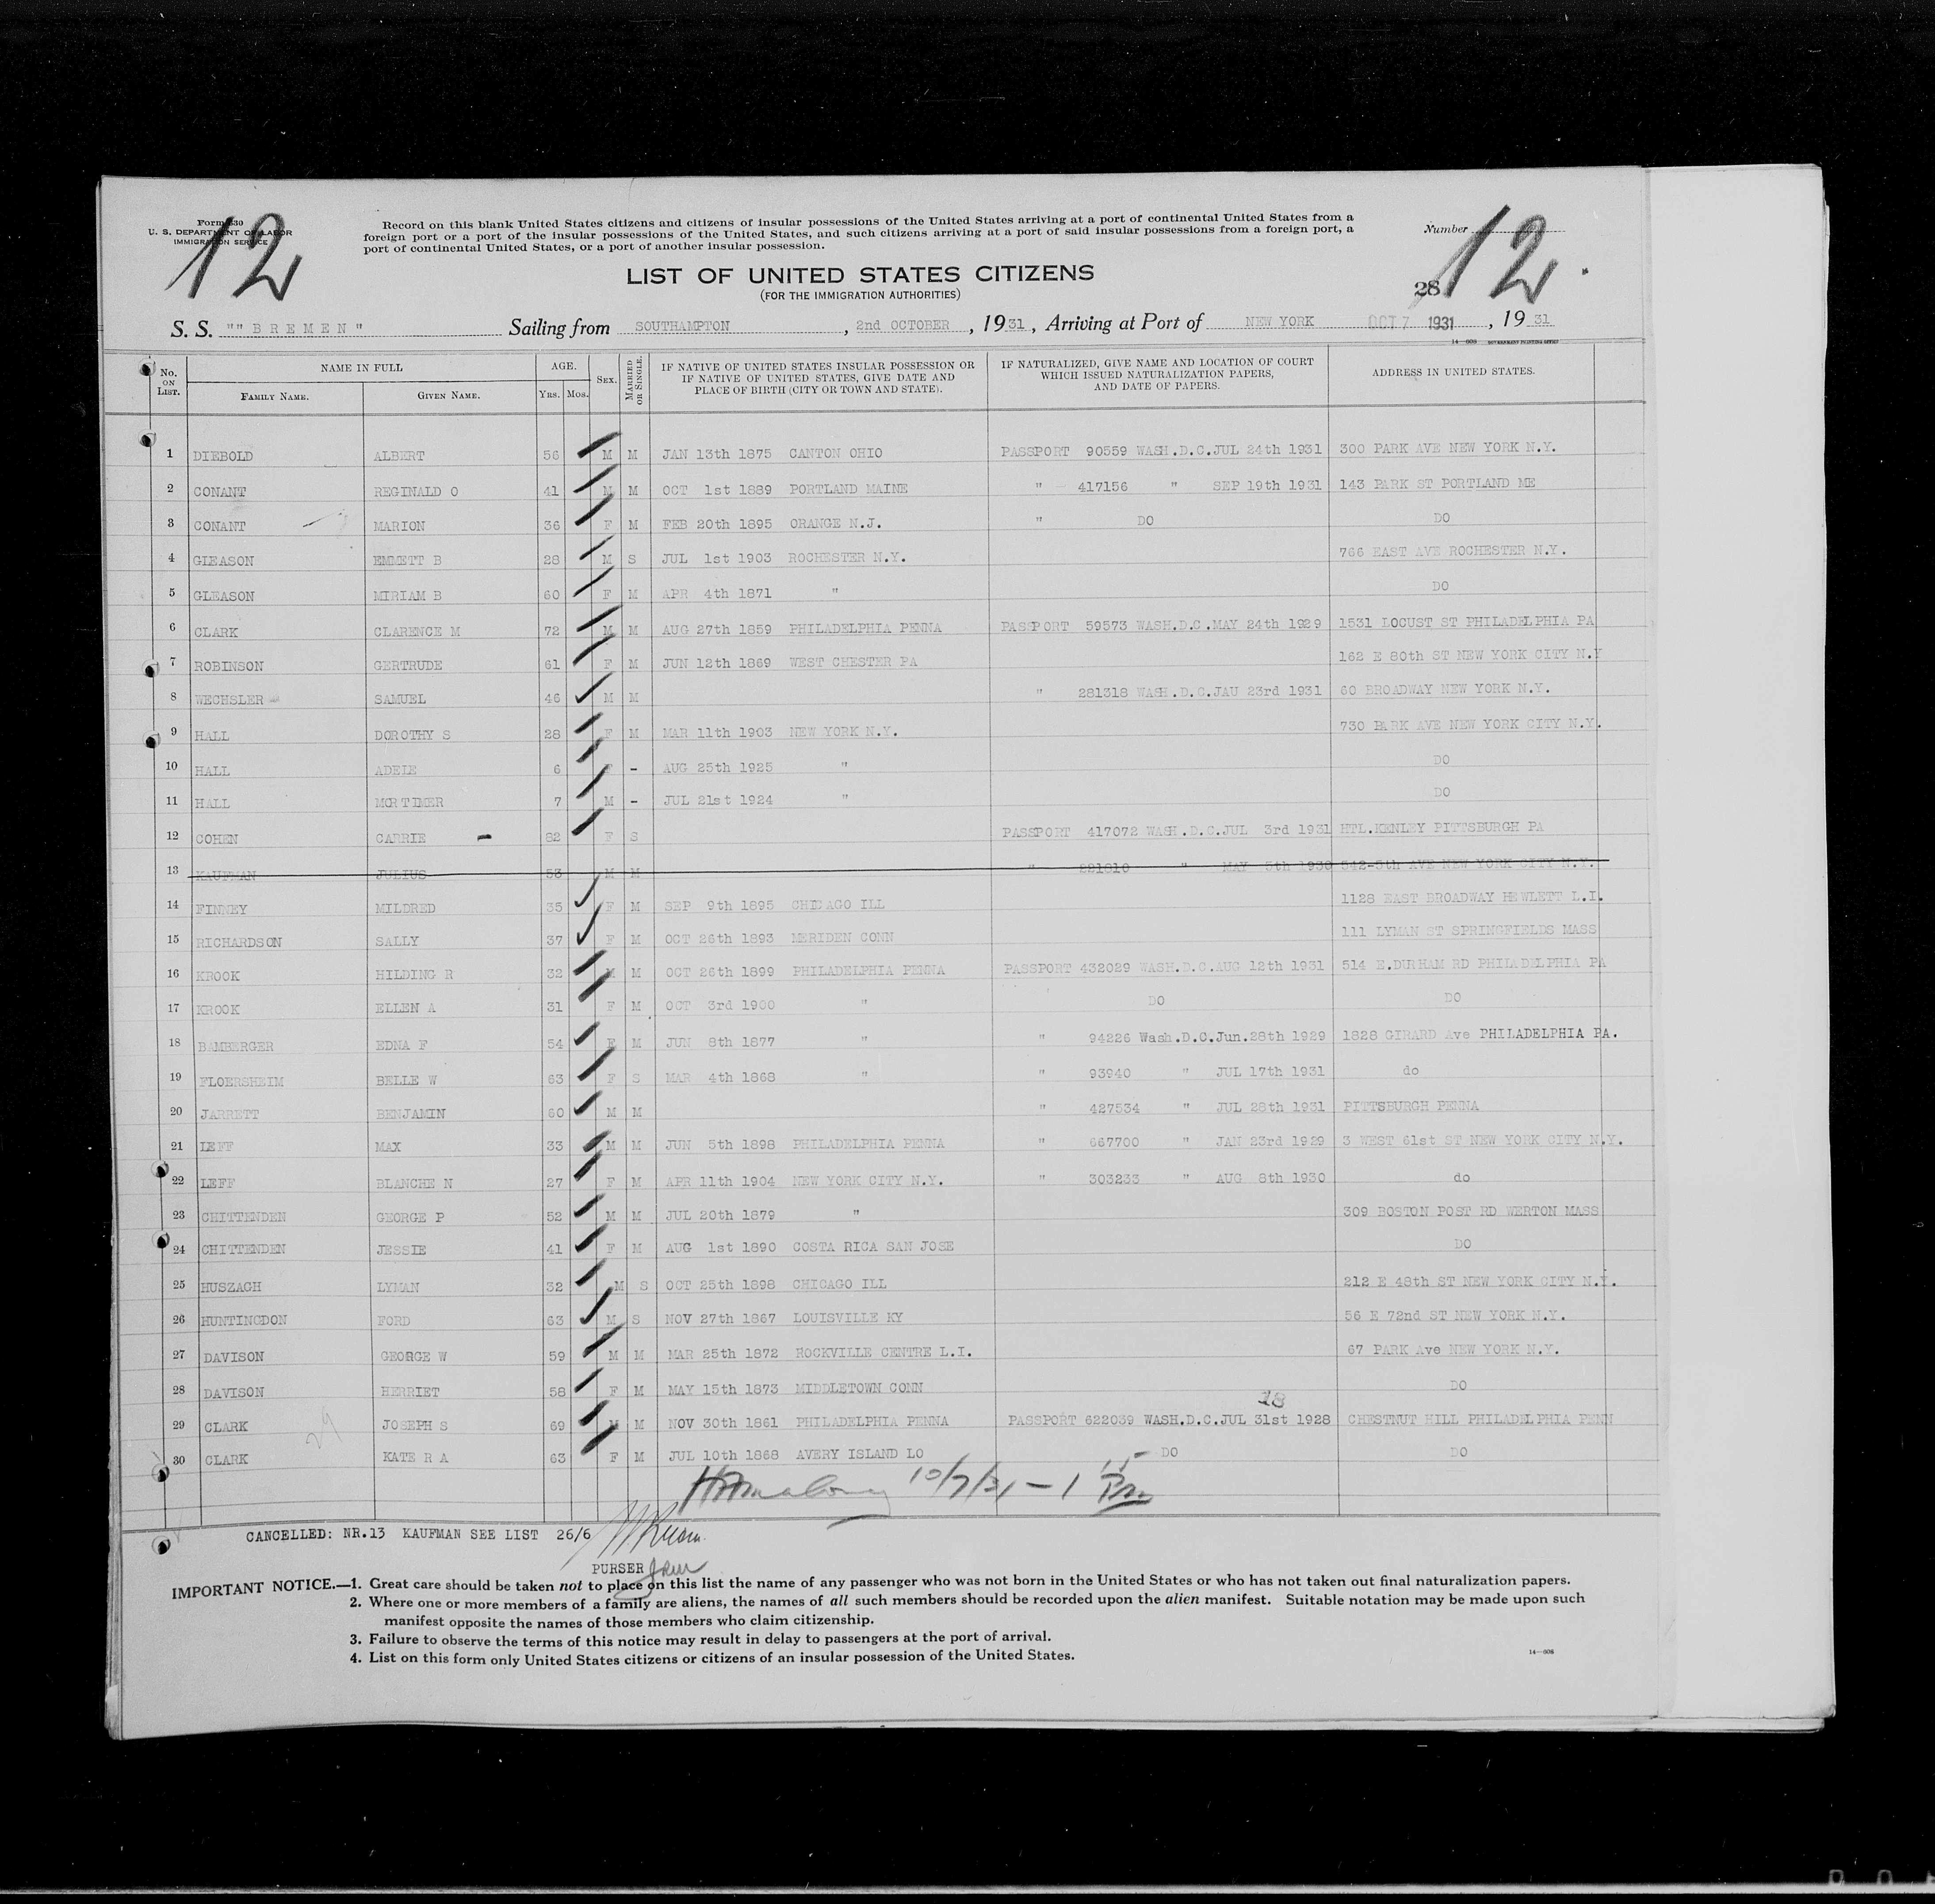 Form 630
U. S. DEPARTMENT OF LABOR
IMMIGRATION SERVICE
12
Record on this blank United States citizens and citizens of insular possessions of the United States arriving at a port of continental United States from a
foreign port or a port of the insular possessions of the United States, and such citizens arriving at a port of said insular possessions from a foreign port, a
port of continental United States, or a port of another insular possession.
Number 12.
28
LIST OF UNITED STATES CITIZENS
(FOR THE IMMIGRATION AUTHORITIES)
S. S. "" B R E M E N " Sailing from SOUTHAMPTON , 2nd OCTOBER , 1931 , Arriving at Port of NEW YORK OCT 7 1931 , 19 31
14—608 GOVERNMENT PRINTING OFFICE
No. ON LIST. NAME IN FULL FAMILY NAME. GIVEN NAME. AGE. YRS. MOS. SEX. MARRIED OR SINGLE. IF NATIVE OF UNITED STATES INSULAR POSSESSION OR IF NATIVE OF UNITED STATES, GIVE DATE AND PLACE OF BIRTH (CITY OR TOWN AND STATE). IF NATURALIZED, GIVE NAME AND LOCATION OF COURT WHICH ISSUED NATURALIZATION PAPERS, AND DATE OF PAPERS. ADDRESS IN UNITED STATES.
1 DIEBOLD ALBERT 56 M M JAN 13th 1875 CANTON OHIO PASSPORT 90559 WASH.D.C.JUL 24th 1931 300 PARK AVE NEW YORK N.Y.
2 CONANT REGINALD O 41 M M OCT 1st 1889 PORTLAND MAINE " 417156 " SEP 19th 1931 143 PARK ST PORTLAND ME
3 CONANT MARION 36 F M FEB 20th 1895 ORANGE N.J. " DO DO
4 GLEASON EMMETT B 28 M S JUL 1st 1903 ROCHESTER N.Y. 766 EAST AVE ROCHESTER N.Y.
5 GLEASON MIRIAM B 60 F M APR 4th 1871 " DO
6 CLARK CLARENCE M 72 M M AUG 27th 1859 PHILADELPHIA PENNA PASSPORT 59573 WASH.D.C.MAY 24th 1929 1531 LOCUST ST PHILADELPHIA PA
7 ROBINSON GERTRUDE 61 F M JUN 12th 1869 WEST CHESTER PA 162 E 80th ST NEW YORK CITY N.Y
8 WECHSLER SAMUEL 46 M M " 281318 WASH.D.C.JAU 23rd 1931 60 BROADWAY NEW YORK N.Y.
9 HALL DOROTHY S 28 F M MAR 11th 1903 NEW YORK N.Y. 730 PARK AVE NEW YORK CITY N.Y.
10 HALL ADELE 6 F - AUG 25th 1925 " DO
11 HALL MORTIMER 7 M - JUL 21st 1924 " DO
12 COHEN CARRIE - 82 F S PASSPORT 417072 WASH.D.C.JUL 3rd 1931 HTL.KENLEY PITTSBURGH PA
13 KAUFMAN JULIUS 53 M M " 221810 " MAY 5th 1930 542-5th AVE NEW YORK CITY N.Y.
14 FINNEY MILDRED 35 F M SEP 9th 1895 CHICAGO ILL 1128 EAST BROADWAY HEWLETT L.I.
15 RICHARDSON SALLY 37 F M OCT 26th 1893 MERIDEN CONN 111 LYMAN ST SPRINGFIELDS MASS
16 KROOK HILDING R 32 M M OCT 26th 1899 PHILADELPHIA PENNA PASSPORT 432029 WASH.D.C.AUG 12th 1931 514 E.DURHAM RD PHILADELPHIA PA
17 KROOK ELLEN A 31 F M OCT 3rd 1900 " DO DO
18 BAMBERGER EDNA F 54 F M JUN 8th 1877 " " 94226 Wash.D.C.Jun.28th 1929 1828 GIRARD Ave PHILADELPHIA PA.
19 FLOERSHEIM BELLE W 63 F S MAR 4th 1868 " " 93940 " JUL 17th 1931 do
20 JARRETT BENJAMIN 60 M M " 427534 " JUL 28th 1931 PITTSBURGH PENNA
21 LEFF MAX 33 M M JUN 5th 1898 PHILADELPHIA PENNA " 667700 " JAN 23rd 1929 3 WEST 61st ST NEW YORK CITY N.Y.
22 LEFF BLANCHE N 27 F M APR 11th 1904 NEW YORK CITY N.Y. " 303233 " AUG 8th 1930 do
23 CHITTENDEN GEORGE P 52 M M JUL 20th 1879 " 309 BOSTON POST RD WERTON MASS
24 CHITTENDEN JESSIE 41 F M AUG 1st 1890 COSTA RICA SAN JOSE DO
25 HUSZAGH LYMAN 32 M S OCT 25th 1898 CHICAGO ILL 212 E 48th ST NEW YORK CITY N.Y.
26 HUNTINGDON FORD 63 M S NOV 27th 1867 LOUISVILLE KY 56 E 72nd ST NEW YORK N.Y.
27 DAVISON GEORGE W 59 M M MAR 25th 1872 ROCKVILLE CENTRE L.I. 67 PARK Ave NEW YORK N.Y.
28 DAVISON HERRIET 58 F M MAY 15th 1873 MIDDLETOWN CONN DO
18
29 CLARK JOSEPH S 69 M M NOV 30th 1861 PHILADELPHIA PENNA PASSPORT 622039 WASH.D.C.JUL 31st 1928 CHESTNUT HILL PHILADELPHIA PENN
29
30 CLARK KATE R A 63 F M JUL 10th 1868 AVERY ISLAND LO DO DO
10/7/31 - 1 15 Pm
CANCELLED: NR.13 KAUFMAN SEE LIST 26/6
PURSER
IMPORTANT NOTICE.—1. Great care should be taken not to place on this list the name of any passenger who was not born in the United States or who has not taken out final naturalization papers.
2. Where one or more members of a family are aliens, the names of all such members should be recorded upon the alien manifest. Suitable notation may be made upon such
manifest opposite the names of those members who claim citizenship.
3. Failure to observe the terms of this notice may result in delay to passengers at the port of arrival.
4. List on this form only United States citizens or citizens of an insular possession of the United States.
14—608